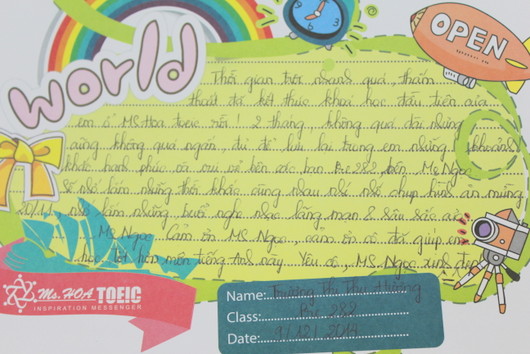 OPEN
world
Thời gian trôi nhanh quá, thấm
thoắt đã kết thúc khoá học đầu tiên của
em ở Ms Hoa toeic rồi! 2 tháng, không quá dài nhưng
cũng không quá ngắn, đủ để lưu lại trong em những khoảnh
khắc hạnh phúc và vui vẻ bên các bạn Pre 282, bên Ms Ngọc
Sẽ nhớ lắm những thời khắc cùng nhau chụp hình ăn mừng
nhớ lắm những buổi nghe nhạc lãng mạn & sâu sắc
Ms Ngọc. Cảm ơn Ms Ngọc, cảm ơn cô đã giúp em
học tốt hơn môn tiếng Anh này. Yêu cô, Ms. Ngọc xinh đẹp
Ms. HOA TOEIC
INSPIRATION MESSENGER
Name: Trương Thị Thu Hương
Class: Pre 282
Date: 9/12/2014